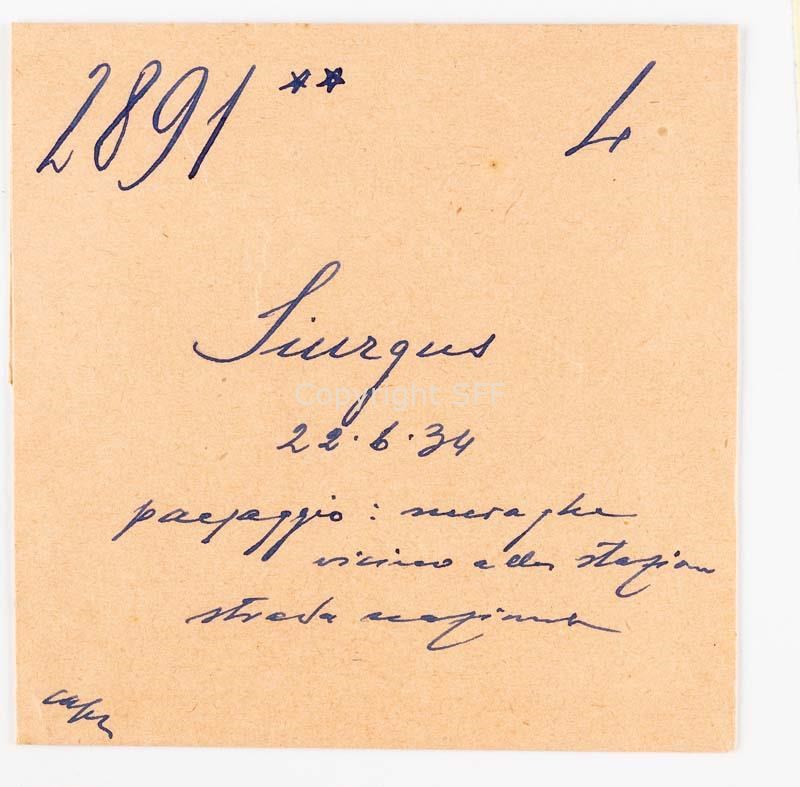 2891 ** 4
Siurgus
Copyright SFF
22.6.34
paesaggio: nuraghe
vicino alla stazione
strada nazionale